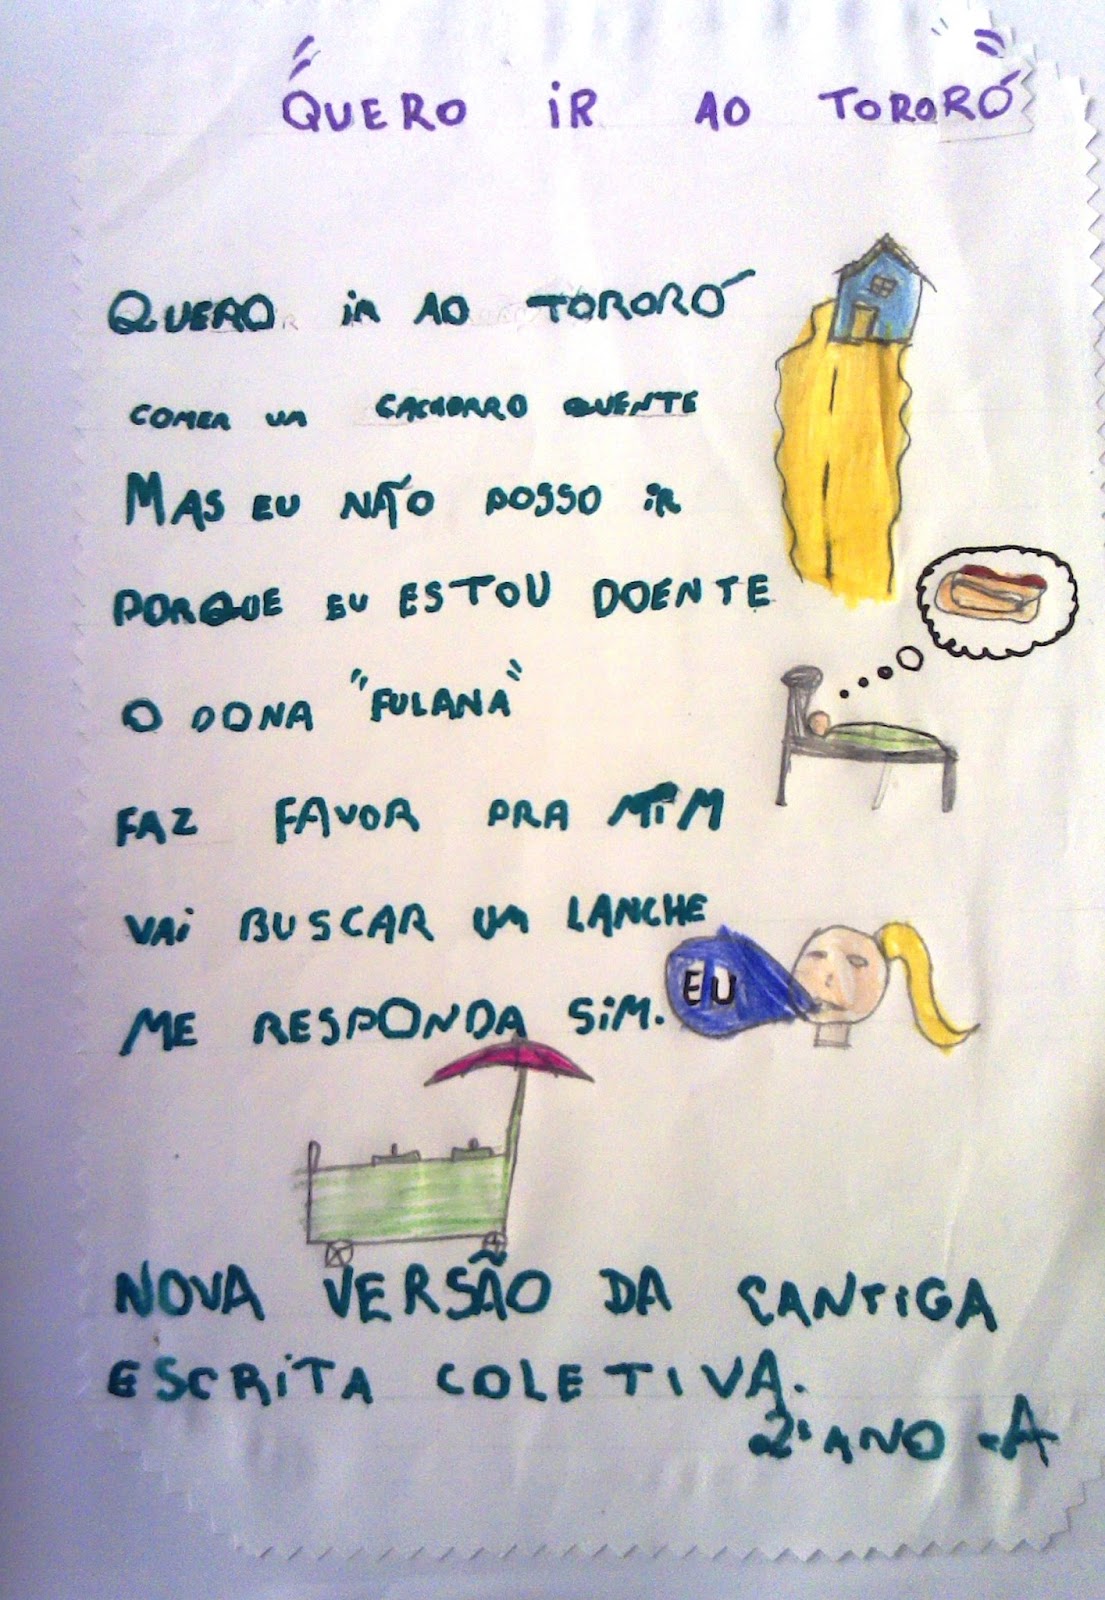 "QUERO IR AO TORORÓ"
QUERO IR AO TORORÓ
COMER UM CACHORRO QUENTE
MAS EU NÃO POSSO IR
PORQUE EU ESTOU DOENTE
O DONA "FULANA"
FAZ FAVOR PRA MIM
VAI BUSCAR UM LANCHE
ME RESPONDA SIM.
EU
NOVA VERSÃO DA CANTIGA
ESCRITA COLETIVA.
2º ANO - A